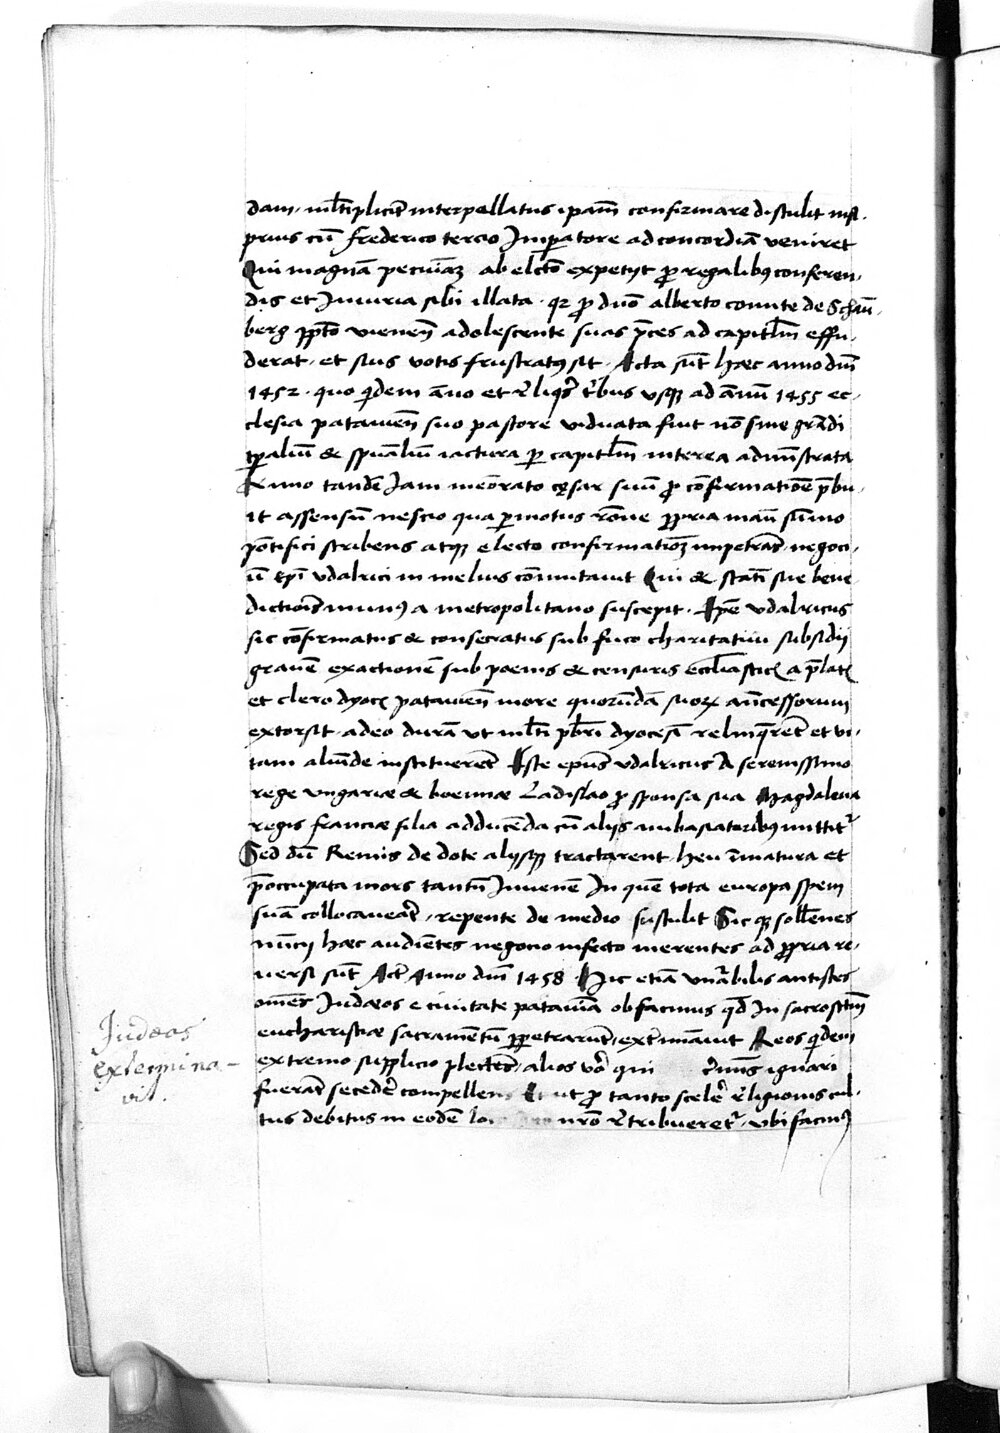 dam, mĺtiplicit̃ interpellatus ipam̃ confirmare distulit nisi.
prius cũ frederico tercio Imp̱atore ad concordiã veniret
Qui magnã pecuniã ab elc̃to expetyt ꝓ regalibꝰ conferen,
dis et Iniuria sibi illata. qꝛ ꝓ dn̄o alberto comite de Schaũ,
berg p̱p̱to vieneñ adolescente suas p̄ces ad capitłm effu,
derat, et suis votis frustratꝰ sit. Acta sũt hæc anno dn̄i
1452. quo q̇dem ãno et r̃liqs̃ tr̃bus vsqꝫ ad ãnũ 1455 ec,
clesia patauieñ suo pastore viduata fuit nõ sine grãdi
tp̱aliũ & sp̃ualiũ iactura p̱ capitłm interea adminĩstrata
Anno tandẽ Iam meõrato cęsar suũ ꝓ cõfirmatiõe p̄bu,
it assensũ nescio qua p̱motus rõne ꝓpria manũ sũmo
põtifici scribens atqꝫ electo confirmatiõꝫ impetrãs negoci,
ũ ep̃i vdalrici in melius cõmutauit Qui & statĩ sue bene
dictiõis munꝰ a metropolitano suscepit. Ep̃c vdalricus
sic cõfirmatus & consecratus sub fuco charitatiui subsidii
grauẽ exactionẽ sub poenis & censuris eccłiasticis a p̄latis
et clero dyoc̃ patauieñ more quorũdã suoꝝ añcessorum
extorsit, adeo durã vt mĺti p̃bri dyocesĩ relinq̃rẽt et vi,
tam aliũde instituerẽt Iste ep̃us vdalricus A serenissimo
rege vngariæ & boemiæ Ladislao ꝓ sponsa sua Magdalena
regis franciæ filia adducẽda cũ aliis ambasiatoribꝰ mittit᷑
Sed dũ Remis de dote aliisqꝫ tractarent heu ĩmatura et
p̄occupata mors tantũ Iuuenẽ In quẽ tota europa spem
suã collocaueãt, repente de medio sustulit Sicqꝫ sollẽnes
nũcii hæc audiẽtes negocio infecto merentes ad ꝓpria re,
uersi sũt Act̃ Anno dn̄i 1458 Hic etiã vñabilis antistes
om̃es Iudæos e ciuitate patauiã ob facinus qd̃ In sacrosctm̃
eucharistiæ sacramẽtũ p̱petrarũt, extr̃minauit Reos q̇dem
extremo supplicio plectẽs, alios vo᷑ qui c̃minis ignari
fuerãt seceder̃ compellens Et ut ꝓ tanto sceler̃ r̃ligionis cul,
tus debitus in eodẽ lo nr̃o r̃tribueret᷑, vbi facinꝰ
Judæos
extermina-
vit.